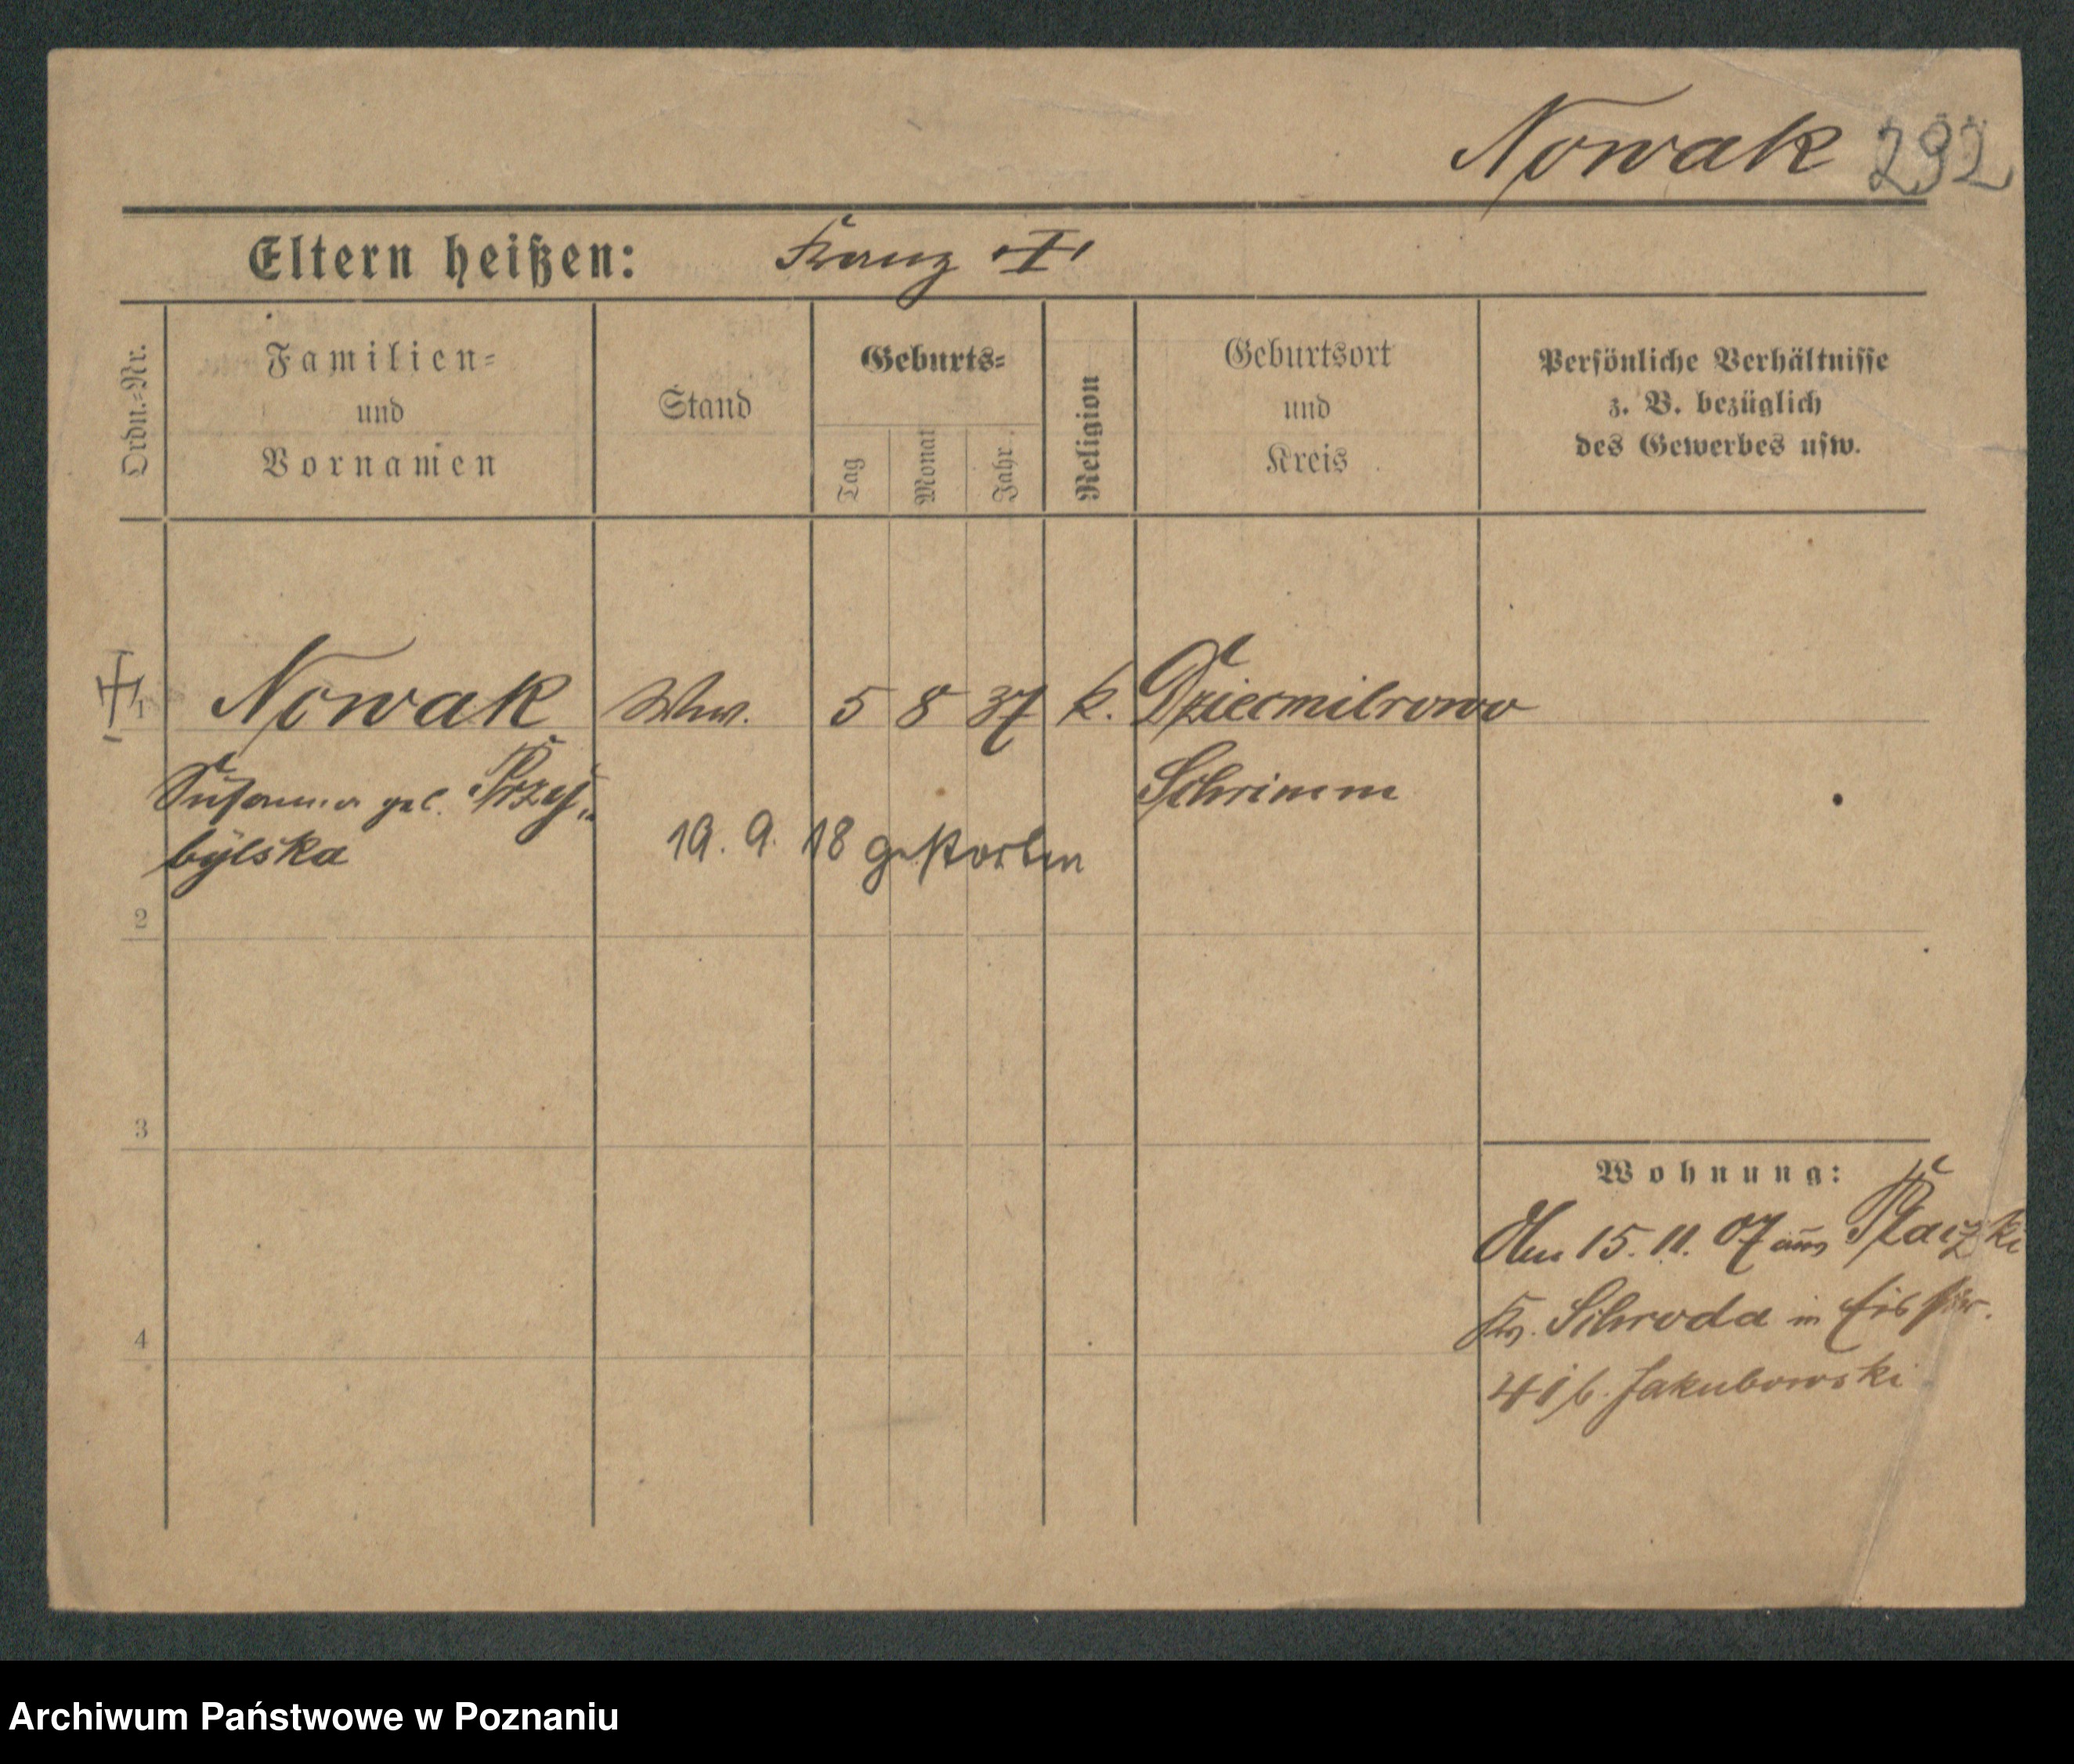 Nowak 292
Eltern heißen: Franz
Ordn.-Nr.
Familien-
und
Vornamen
Stand
Geburts-
Tag
Monat
Jahr.
Religion
Geburtsort
und
Kreis
Persönliche Verhältnisse
z. B. bezüglich
des Gewerbes usw.
1 Nowak Ww. 5 8 37 k. Dziecmilrowo
Susanna geb. Przy-
bylska
Schrimm
19. 9. 18 gestorben
2
3
4
Wohnung:
Am 15. 11. 07 aus Płaczki
Krs. Schroda in
41 b. Jakubowski
Archiwum Państwowe w Poznaniu